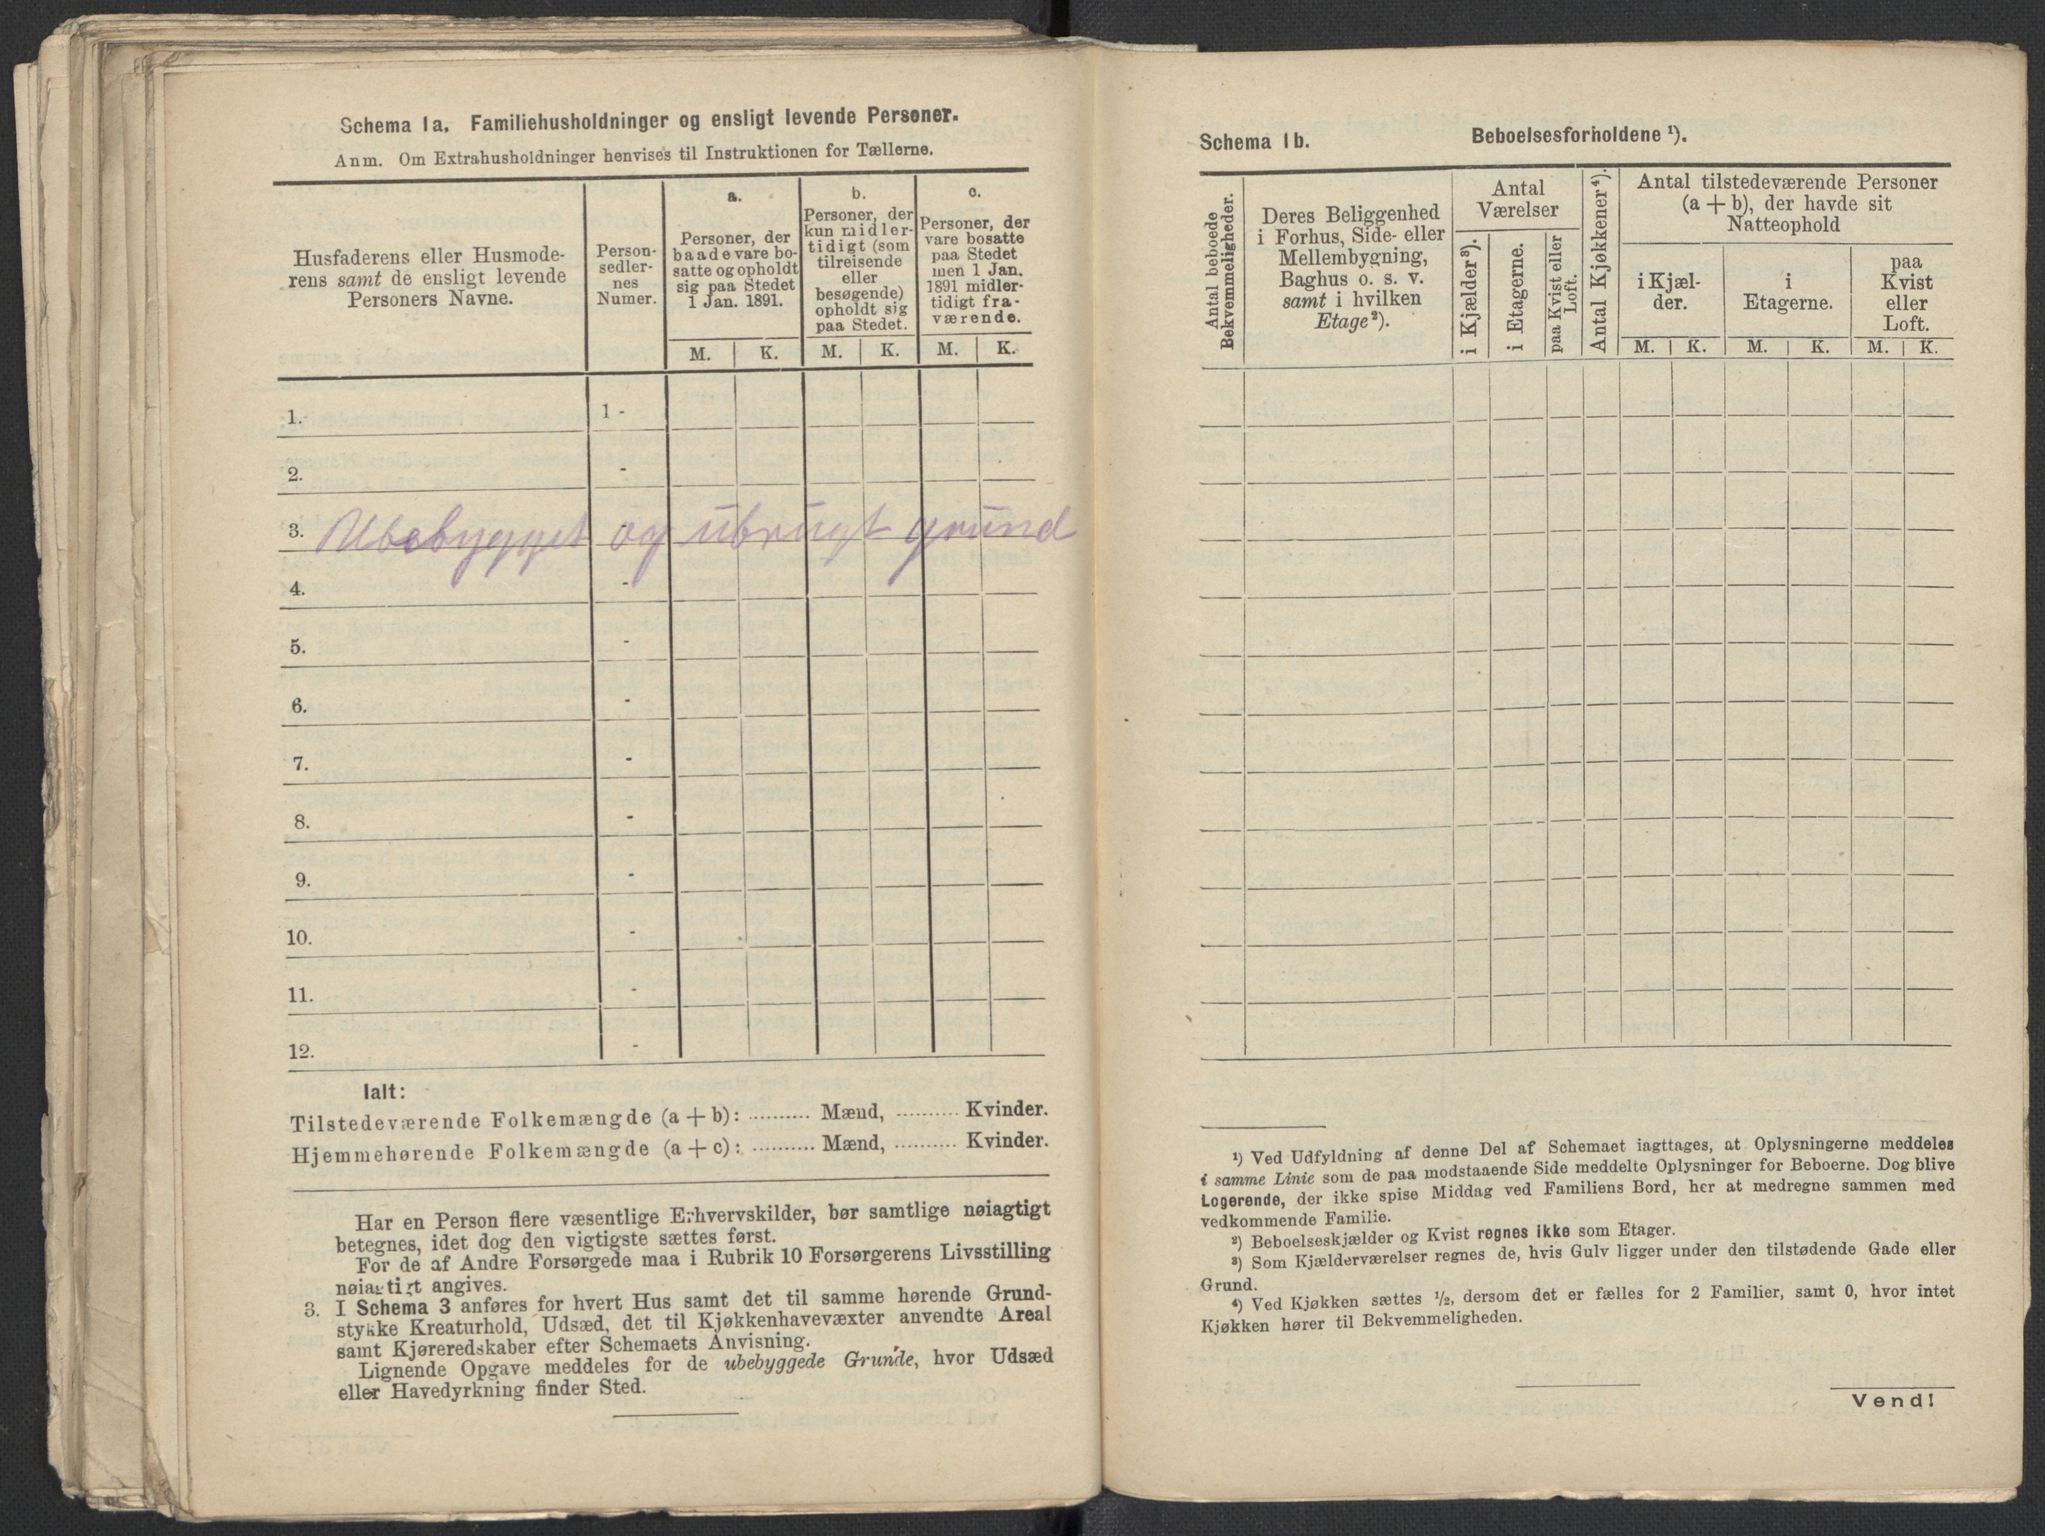 Schema 1a. Familiehusholdninger og ensligt levende Personer.
Anm. Om Extrahusholdninger henvises til Instruktionen for Tællerne.
Husfaderens eller Husmode-
rens samt de ensligt levende
Personers Navne.
Person-
sedler-
nes
Numer.
a.
Personer, der
baade vare bo-
satte og opholdt
sig paa Stedet
1 Jan. 1891.
b.
Personer, der
kun midler-
tidigt (som
tilreisende
eller
besøgende)
opholdt sig
paa Stedet.
c.
Personer, der
vare bosatte
paa Stedet
men 1 Jan.
1891 midler-
tidigt fra-
værende.
M. K. M. K. M. K.
1. 1 -
2. -
3. Ubebygget og ubrugt grund
4. -
5. -
6. -
7. -
8. -
9. -
10. -
11. -
12. -
Ialt:
Tilstedeværende Folkemængde (a + b): .......... Mænd, .......... Kvinder.
Hjemmehørende Folkemængde (a + c): .......... Mænd, .......... Kvinder.
Har en Person flere væsentlige Erhvervskilder, bør samtlige nøiagtigt
betegnes, idet dog den vigtigste sættes først.
For de af Andre Forsørgede maa i Rubrik 10 Forsørgerens Livsstilling
nøiagtigt angives.
3. I Schema 3 anføres for hvert Hus samt det til samme hørende Grund-
stykke Kreaturhold, Udsæd, det til Kjøkkenhavevæxter anvendte Areal
samt Kjøreredskaber efter Schemaets Anvisning.
Lignende Opgave meddeles for de ubebyggede Grunde, hvor Udsæd
eller Havedyrkning finder Sted.
Schema 1b. Beboelsesforholdene ¹).
Antal beboede
Bekvemmeligheder.
Deres Beliggenhed
i Forhus, Side- eller
Mellembygning,
Baghus o. s. v.
samt i hvilken
Etage²).
Antal
Værelser
i Kjælder³).
i Etagerne.
paa Kvist eller
Loft.
Antal Kjøkkener⁴).
Antal tilstedeværende Personer
(a + b), der havde sit
Natteophold
i Kjæl-
der.
i
Etagerne.
paa
Kvist
eller
Loft.
M. K. M. K. M. K.
¹) Ved Udfyldning af denne Del af Schemaet iagttages, at Oplysningerne meddeles
i samme Linie som de paa modstaaende Side meddelte Oplysninger for Beboerne. Dog blive
Logerende, der ikke spise Middag ved Familiens Bord, her at medregne sammen med
vedkommende Familie.
²) Beboelseskjælder og Kvist regnes ikke som Etager.
³) Som Kjælderværelser regnes de, hvis Gulv ligger under den tilstødende Gade eller
Grund.
⁴) Ved Kjøkken sættes ½, dersom det er fælles for 2 Familier, samt 0, hvor intet
Kjøkken hører til Bekvemmeligheden.
Vend!